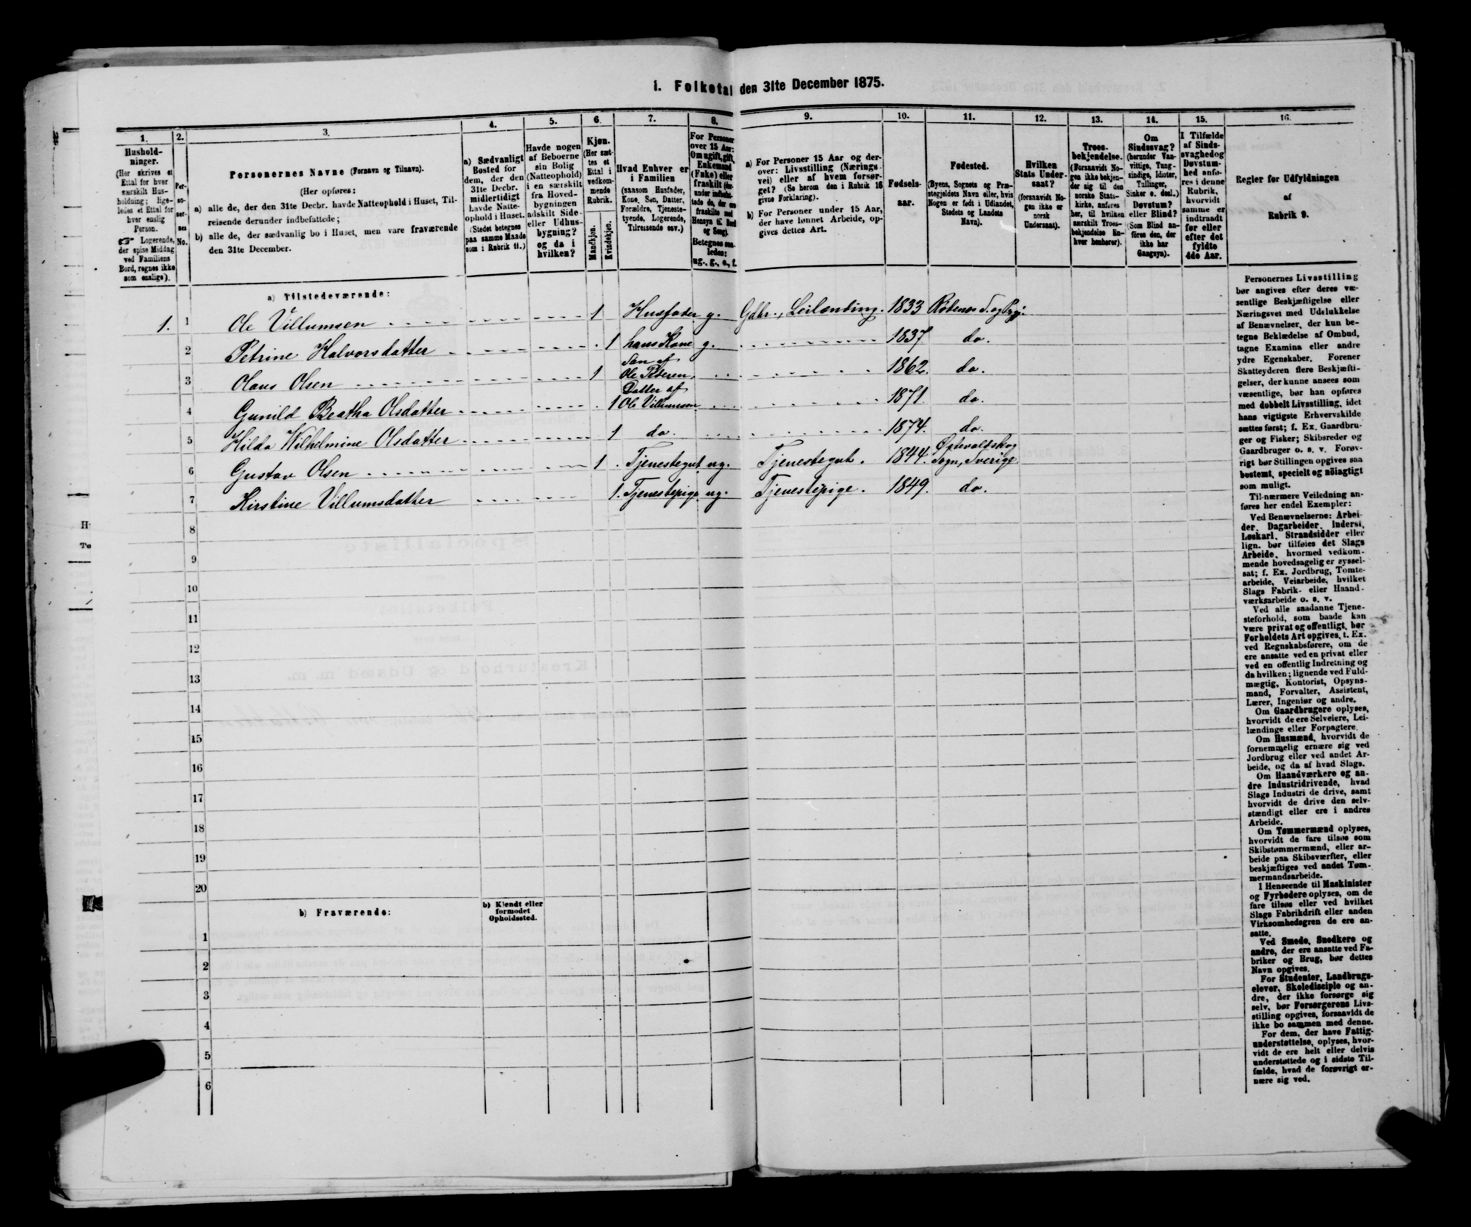 1. Folketal den 31te December 1875.
1. 2. 3. 4. 5. 6. 7. 8. 9. 10. 11. 12. 13. 14. 15. 16.
Hushold-
ninger.
(Her skrives et
Ettal for hver
særskilt Hus-
holdning; lige-
ledes et Ettal for
hver enslig
Person.
☞ Logerende,
der spise Middag
ved Familiens
Bord, regnes ikke
som enslige).
Per-
so-
ner-
nes
No.
Personernes Navne (Fornavn og Tilnavn).
(Her opføres:
a) alle de, der den 31te Decbr. havde Natteophold i Huset, Til-
reisende derunder indbefattede;
b) alle de, der sædvanlig bo i Huset, men vare fraværende
den 31te December.
a) Sædvanligt
Bosted for
dem, der den
31te Decbr.
midlertidigt
havde Natte-
ophold i Huset.
(Stedet betegnes
paa samme Maade
som i Rubrik 11.)
Havde nogen
af Beboerne
sin Bolig
(Natteophold)
i en særskilt
fra Hoved-
bygningen
adskilt Side-
eller Udhus-
bygning?
og da i
hvilken?
Kjøn.
(Her sæt-
tes et
Ettal i
vedkom-
mende
Rubrik.
Mandkjøn.
Kvindekjøn.
Hvad Enhver er
i Familien
(saasom Husfader,
Kone, Søn, Datter,
Forældre, Tjeneste-
tyende, Logerende,
Tilreisende osv.)
For Personer
over 15 Aar:
Om ugift, gift,
Enkemand
(Enke) eller
fraskilt
Betegnes saa-
ledes:
ug., g., e., f.
a) For Personer 15 Aar og der-
over: Livsstilling (Nærings-
vei) eller af hvem forsør-
get? (Se herom den i Rubrik 16
givne Forklaring).
b) For Personer under 15 Aar,
der have lønnet Arbeide, op-
gives dettes Art.
Fødsels-
aar.
Fødested.
(Byens, Sognets og Præ-
stegjeldets Navn eller, hvis
Nogen er født i Udlandet,
Stedets og Landets
Navn).
Hvilken
Stats Under-
saat?
(forsaavidt No-
gen ikke er
norsk
Undersaat).
Troes-
bekjendelse.
(Forsaavidt No-
gen ikke bekjen-
der sig til den
norske Stats-
kirke, anføres
her, til hvilken
særskilt Troes-
bekjendelse En-
hver henhører).
Om
Sindssvag?
(herunder Van-
vittige, Tung-
sindige, Idioter,
Tullinger,
Sinker o. desl.)
Døvstum?
eller Blind?
(Som Blind an-
føres den, der
ikke har
Gangsyn).
I Tilfælde
af Sinds-
svaghed og
Døvstum-
hed anfø-
res i denne
Rubrik,
hvorvidt
samme er
indtraadt
før eller
efter det
fyldte
4de Aar.
Regler for Udfyldningen
af
Rubrik 9.
a) Tilstedeværende:
1. 1 Ole Villumsen 1 Husfader g. Gdbr., Leilænding. 1833 Rødenes S. og Prgj.
2 Petrine Halvorsdatter 1 hans Kone g. 1837 do.
3 Olaus Olsen 1 Søn af
Ole Petersen 1862. do.
4 Gunild Beatha Olsdatter 1 Datter af
Ole Villumsen 1871 do.
5 Hilda Wilhelmine Olsdatter 1 do. 1874. do.
6 Gustav Olsen 1 Tjenestegut ug. Tjenestegut. 1844. Østervalskog
Sogn, Sverige
7 Kirstine Villumsdatter 1. Tjenestepige ug. Tjenestepige. 1849. do.
8
9
10
11
12
13
14
15
16
17
18
19
20
b) Fraværende:
b) Kjendt eller
formodet
Opholdssted.
1
2
3
4
5
6
Personernes Livsstilling
bør angives efter deres væ-
sentlige Beskjæftigelse eller
Næringsvei med Udelukkelse
af Benævnelser, der kun be-
tegne Beklædelse af Ombud,
tagne Examina eller andre
ydre Egenskaber. Forener
Skatteyderen flere Beskjæfti-
gelser, der kunne ansees som
væsentlige, bør han opføres
med dobbelt Livsstilling, idet
hans vigtigste Erhvervskilde
sættes først; f. Ex. Gaardbru-
ger og Fisker; Skibsreder og
Gaardbruger o. s. v. Forøv-
rigt bør Stillingen opgives saa
bestemt, specielt og nøiagtigt
som muligt.
Til nærmere Veiledning an-
føres her endel Exempler:
Ved Benævnelserne: Arbei-
der, Dagarbeider, Inderst,
Løskarl, Strandsidder eller
lign. bør tilføies det Slags
Arbeide, hvormed vedkom-
mende hovedsagelig er syssel-
sat; f. Ex. Jordbrug, Tomte-
arbeide, Veiarbeide, hvilket
Slags Fabrik- eller Haand-
værksarbeide o. s. v.
Ved alle saadanne Tjene-
steforhold, som baade kan
være privat og offentligt, bør
Forholdets Art opgives, t. Ex.
ved Regnskabsførere, om de
ere ansatte ved en privat eller
ved en offentlig Indretning og
da hvilken; lignende ved Fuld-
mægtig, Kontorist, Opsyns-
mand, Forvalter, Assistent,
Lærer, Ingeniør og andre.
Om Gaardbrugere oplyses,
hvorvidt de ere Selveiere, Lei-
lændinge eller Forpagtere.
Om Husmænd, hvorvidt de
fornemmelig ernære sig ved
Jordbrug eller ved andet Ar-
beide, og da af hvad Slags.
Om Haandværkere og an-
dre Industridrivende, hvad
Slags Industri de drive, samt
hvorvidt de drive den selv-
stændigt eller ere i andres
Arbeide.
Om Tømmermænd oplyses,
hvorvidt de fare tilsøs som
Skibstømmermænd, eller ar-
beide paa Skibsværfter, eller
beskjæftiges ved andet Tøm-
mermandsarbeide.
I Henseende til Maskinister
og Fyrbødere oplyses, om de
fare tilsøs eller ved hvilket
Slags Fabrikdrift eller anden
Virksomhedsgren de ere an-
satte.
Ved Smede, Snedkere og
andre, der ere ansatte ved Fa-
briker og Brug, bør dettes
Navn opgives.
For Studenter, Landbrugs-
elever, Skoledisciple og an-
dre, der ikke forsørge sig
selv, bør Forsørgerens Livs-
stilling opgives, forsaavidt de
ikke bo sammen med denne.
For dem, der have Fattig-
understøttelse, oplyses, hvor-
vidt de ere helt eller delvis
understøttede og i sidste Til-
fælde, hvad de forøvrigt er-
nære sig ved.